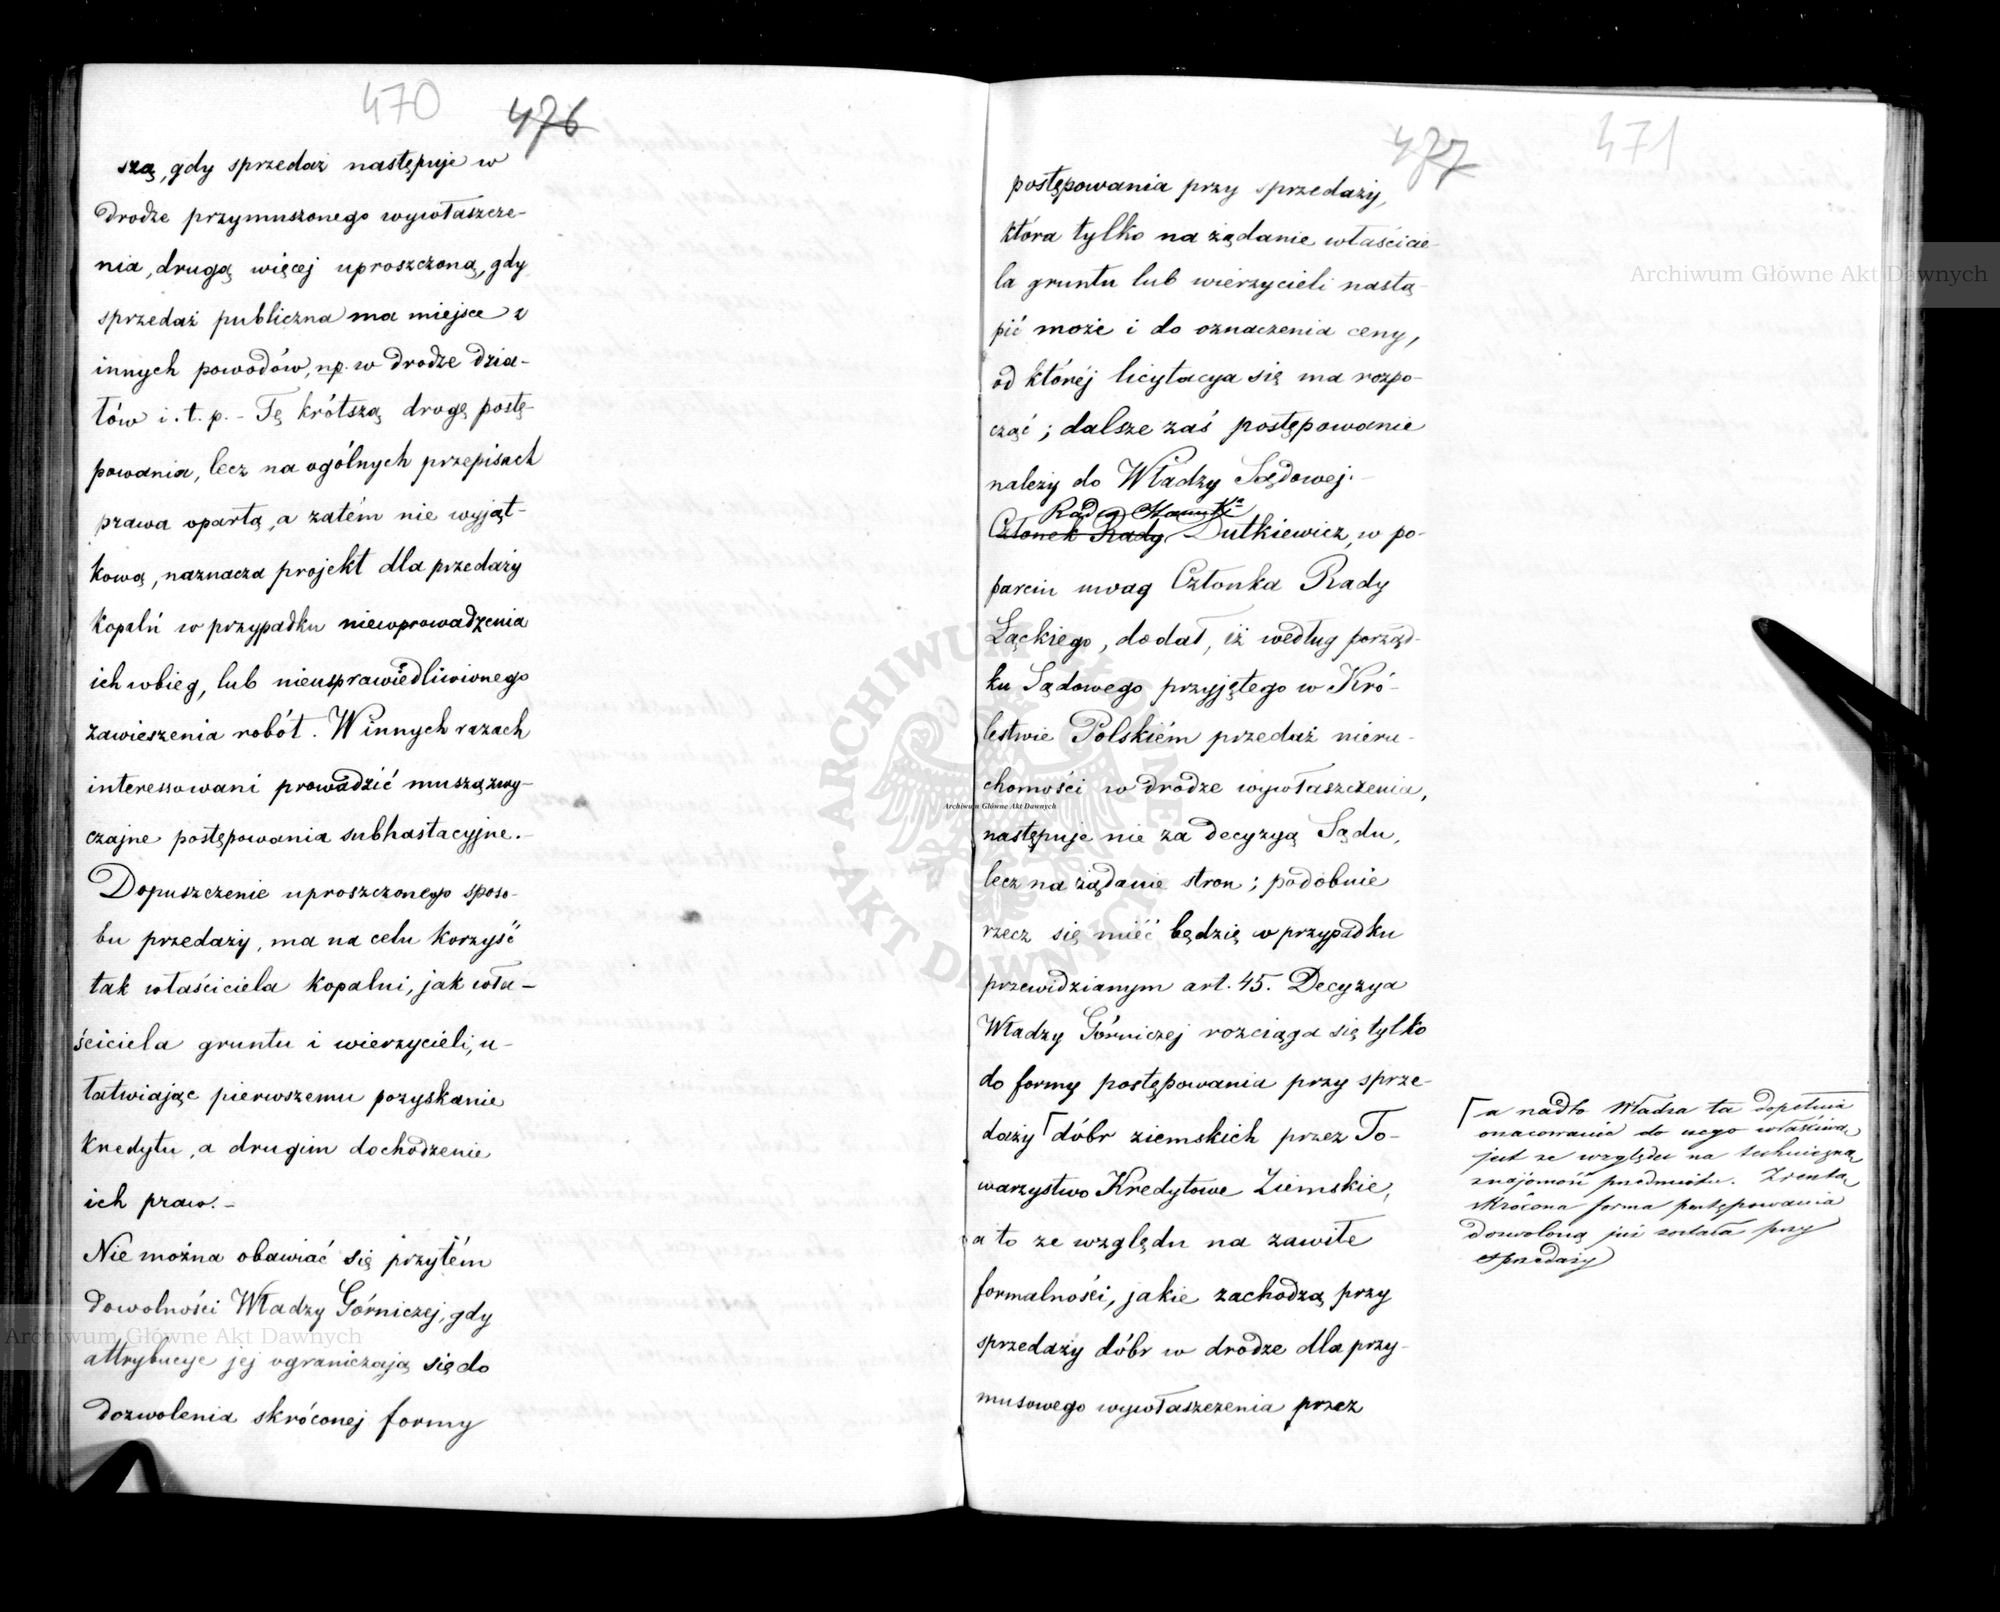 470
476
szą, gdy sprzedaż następuje w
drodze przymuszonego wywłaszcze-
nia, drugą więcej uproszczoną, gdy
sprzedaż publiczna ma miejsce z
innych powodów, np. w drodze dzia-
łów i. t. p. - Tę krótszą drogę postę-
powania, lecz na ogólnych przepisach
prawa opartą, a zatém nie wyjąt-
kową, naznacza projekt dla przedaży
kopalń w przypadku niewprowadzenia
ich w bieg, lub nieusprawiedliwionego
zawieszenia robót. W innych razach
interessowani prowadzić muszą zwy-
czajne postępowania subhastacyjne. -
Dopuszczenie uproszczonego sposo-
bu przedaży, ma na celu korzyść
tak właściciela kopalni, jak wła-
ściciela gruntu i wierzycieli, u-
łatwiając pierwszemu pozyskanie
kredytu, a drugim dochodzenie
ich praw. -
Nie można obawiać się przytém
dowolności Władzy Górniczej, gdy
attrybucye jej ograniczają się do
dozwolenia skróconej formy
477
471
postępowania przy sprzedaży,
która tylko na żądanie właścicie-
la gruntu lub wierzycieli nastą-
pić może i do oznaczenia ceny,
od któréj licytacya się ma rozpo-
cząć; dalsze zaś postępowanie
należy do Władzy Sądowej. -
Radca
Członek Rady Dutkiewicz, w po-
parciu uwag Członka Rady
Łąckiego, dodał, iż według porząd-
ku Sądowego przyjętego w Kró-
lestwie Polskiém przedaż nieru-
chomości w drodze wywłaszczenia,
następuje nie za decyzyą Sądu,
lecz na żądanie stron; podobnie
rzecz się mieć będzie w przypadku
przewidzianym art. 45. Decyzya
Władzy Górniczej rozciąga się tylko
do formy postępowania przy sprze-
daży ⌈ dóbr ziemskich przez To-
warzystwo Kredytowe Ziemskie,
a to ze względu na zawiłe
formalności, jakie zachodzą przy
sprzedaży dóbr w drodze dla przy-
musowego wywłaszczenia przez
⌈ a nadto Władza ta dopełnia
oszacowanie do czego właściwą
jest ze względu na techniczną
znajomość przedmiotu. Zresztą
skrócona forma postępowania
dozwoloną już została przy
sprzedaży
Archiwum Główne Akt Dawnych
Archiwum Główne Akt Dawnych
Archiwum Główne Akt Dawnych
ARCHIWUM GŁÓWNE AKT DAWNYCH